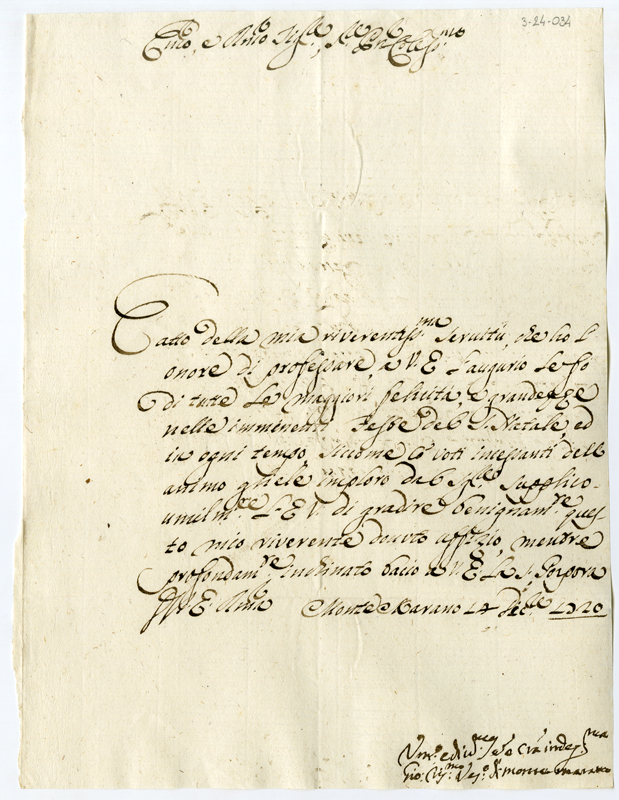 3-24-034
Em.o, e Rmo Sig.re, Sig.re Pron Col.mo
E atto della mia riverentiss.ma servitù, che hò l
onore di professare, a V E l'augurio che fò
di tutte le maggiori felicità, e grandezze
nelle imminenti Feste del S. Natale, ed
in ogni tempo, sicome Co' voti incessanti dell
animo gliele imploro dal Sig.re Supplico
umilm.te L'E V. di gradire benignam.te ques-
to mio riverente dovuto uffizio, mentre
profondam.te inclinato bacio a V. E. La S. Porpora
Di V E. Rma Monte Marano 14 Xbre 1720
Um.o e di
Gio: Vesc.o di monte marano